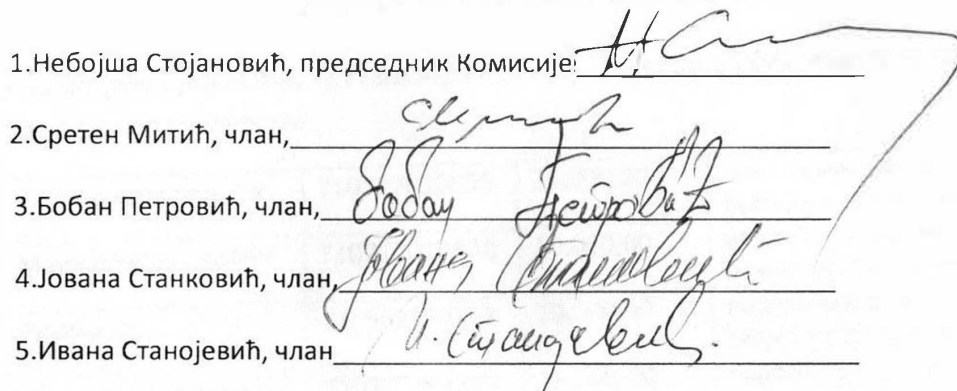 1.Небојша Стојановић, председник Комисије:
2.Сретен Митић, члан,
3.Бобан Петровић, члан, Бобан Петровић
4.Јована Станковић, члан, Јована Станковић
5.Ивана Станојевић, члан И. Станојевић